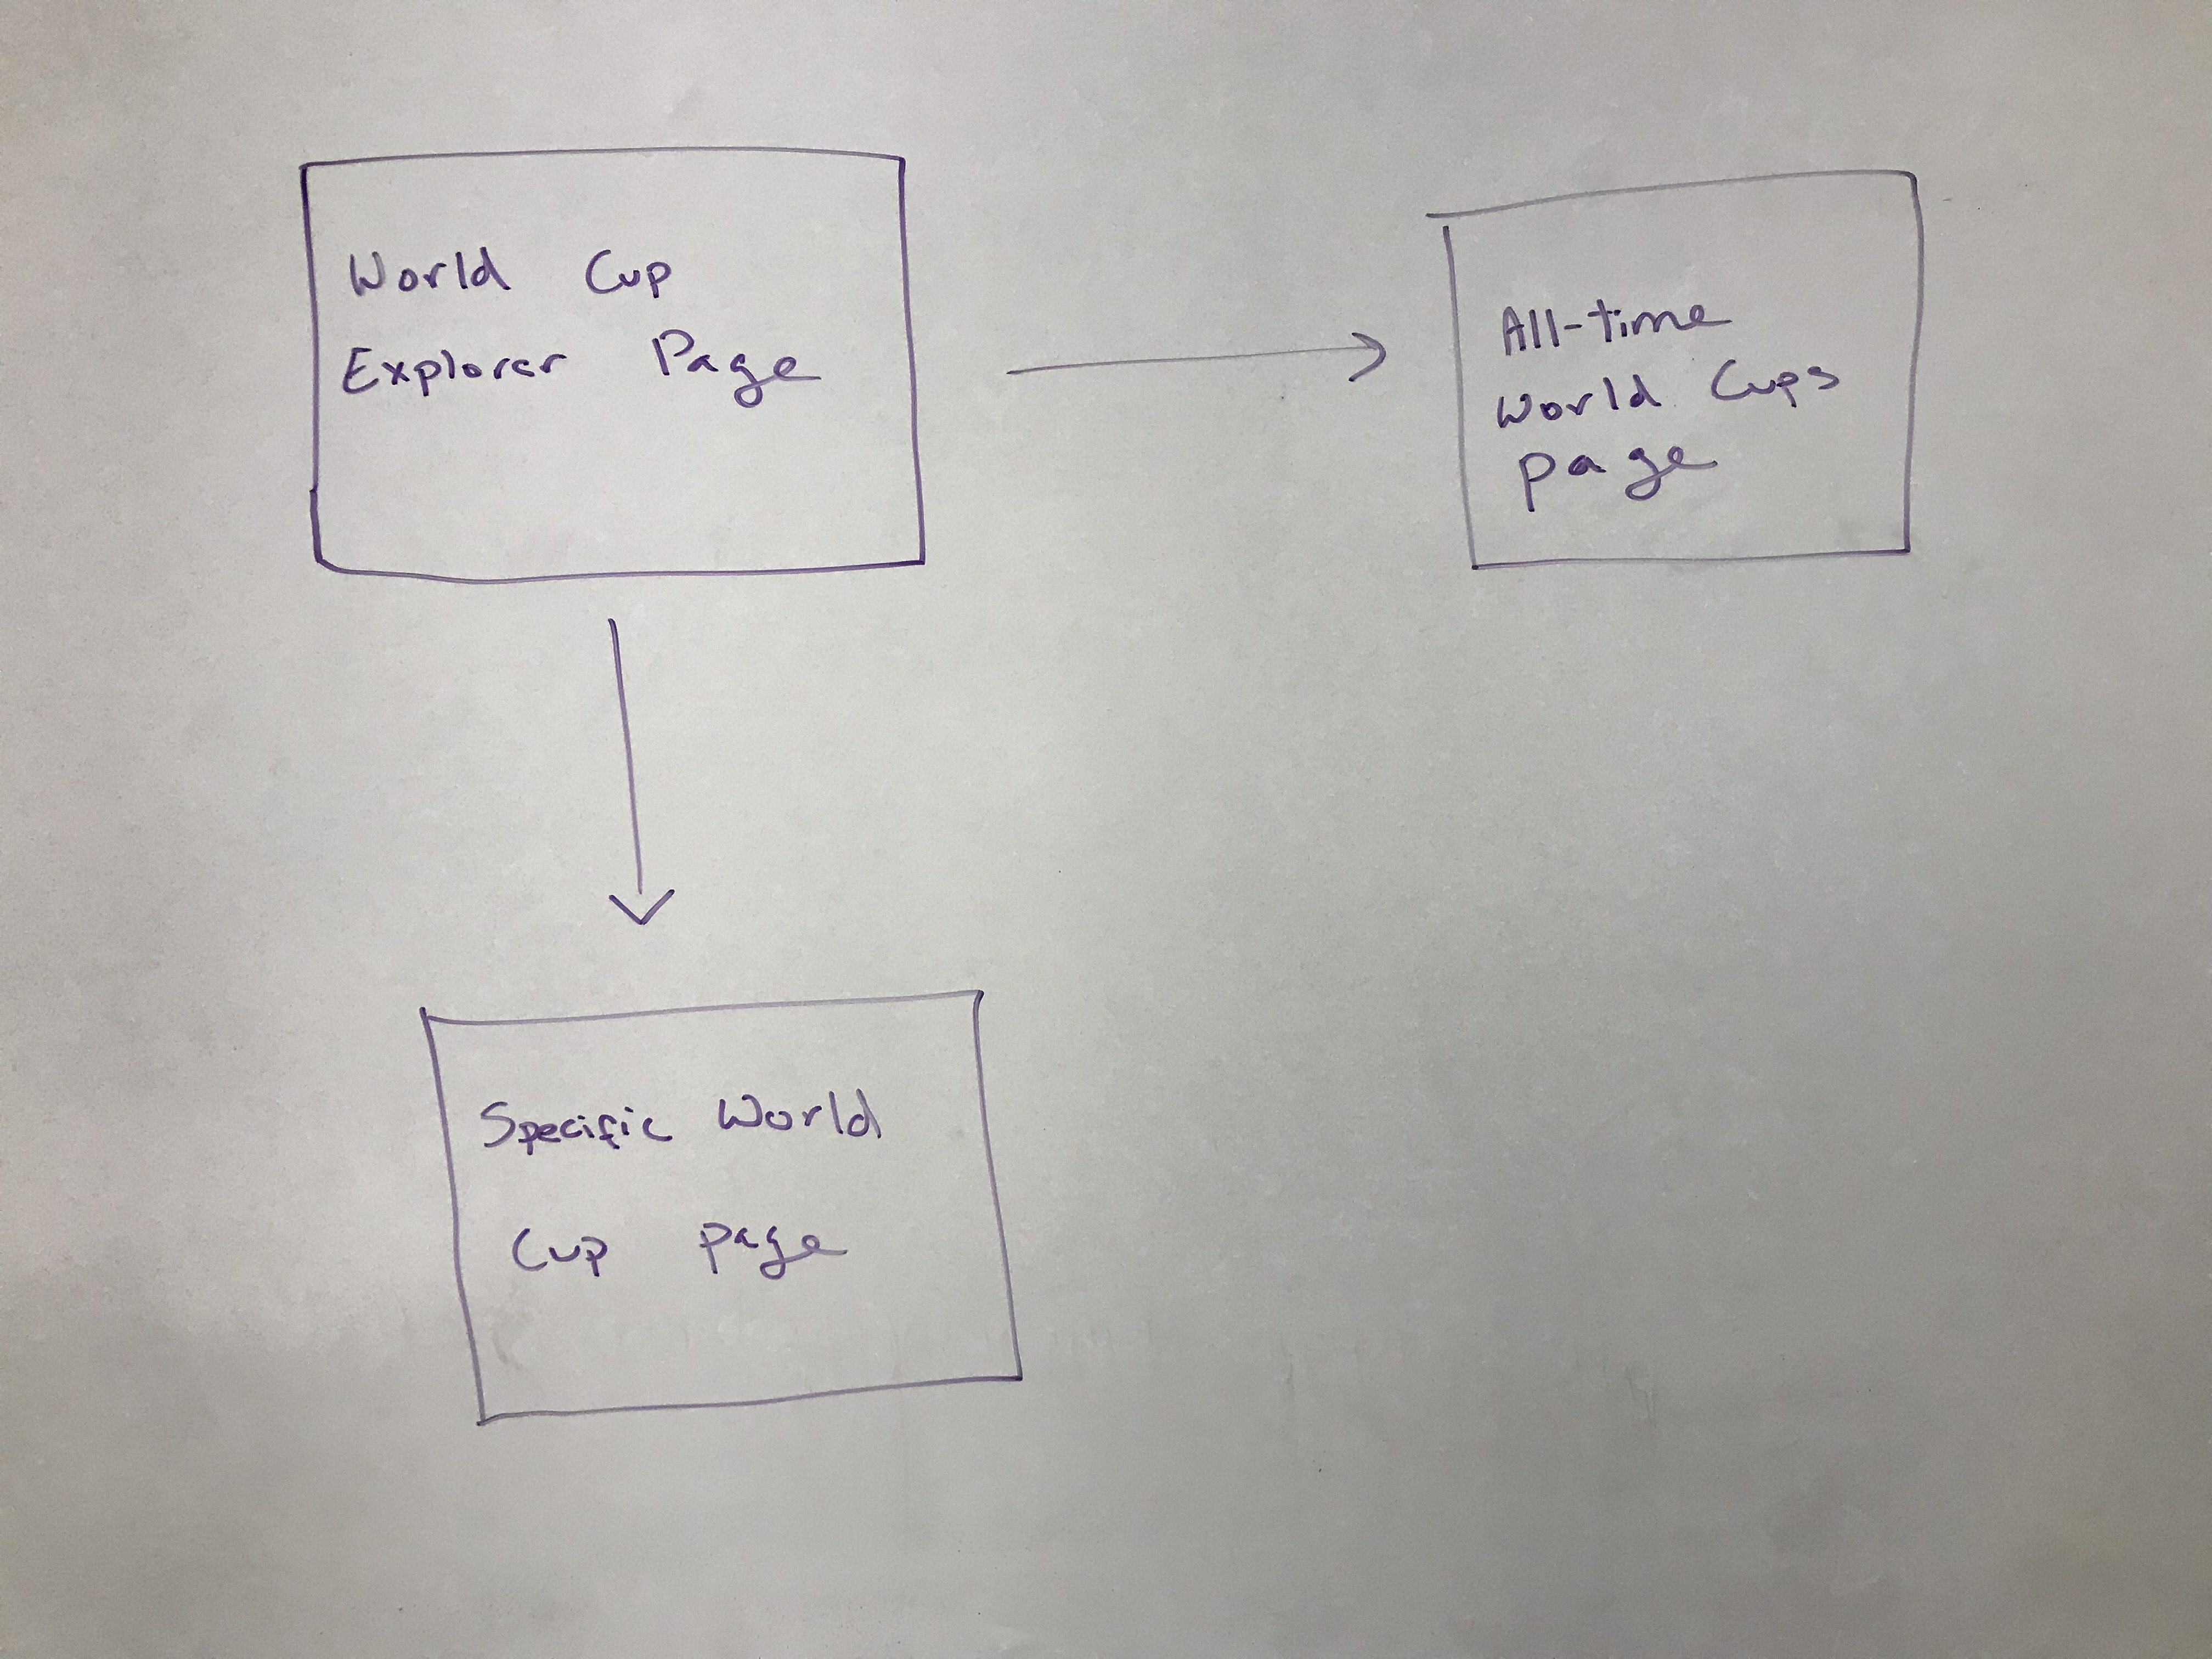 World Cup
Explorer Page
All-time
World Cups
page
Specific World
Cup page